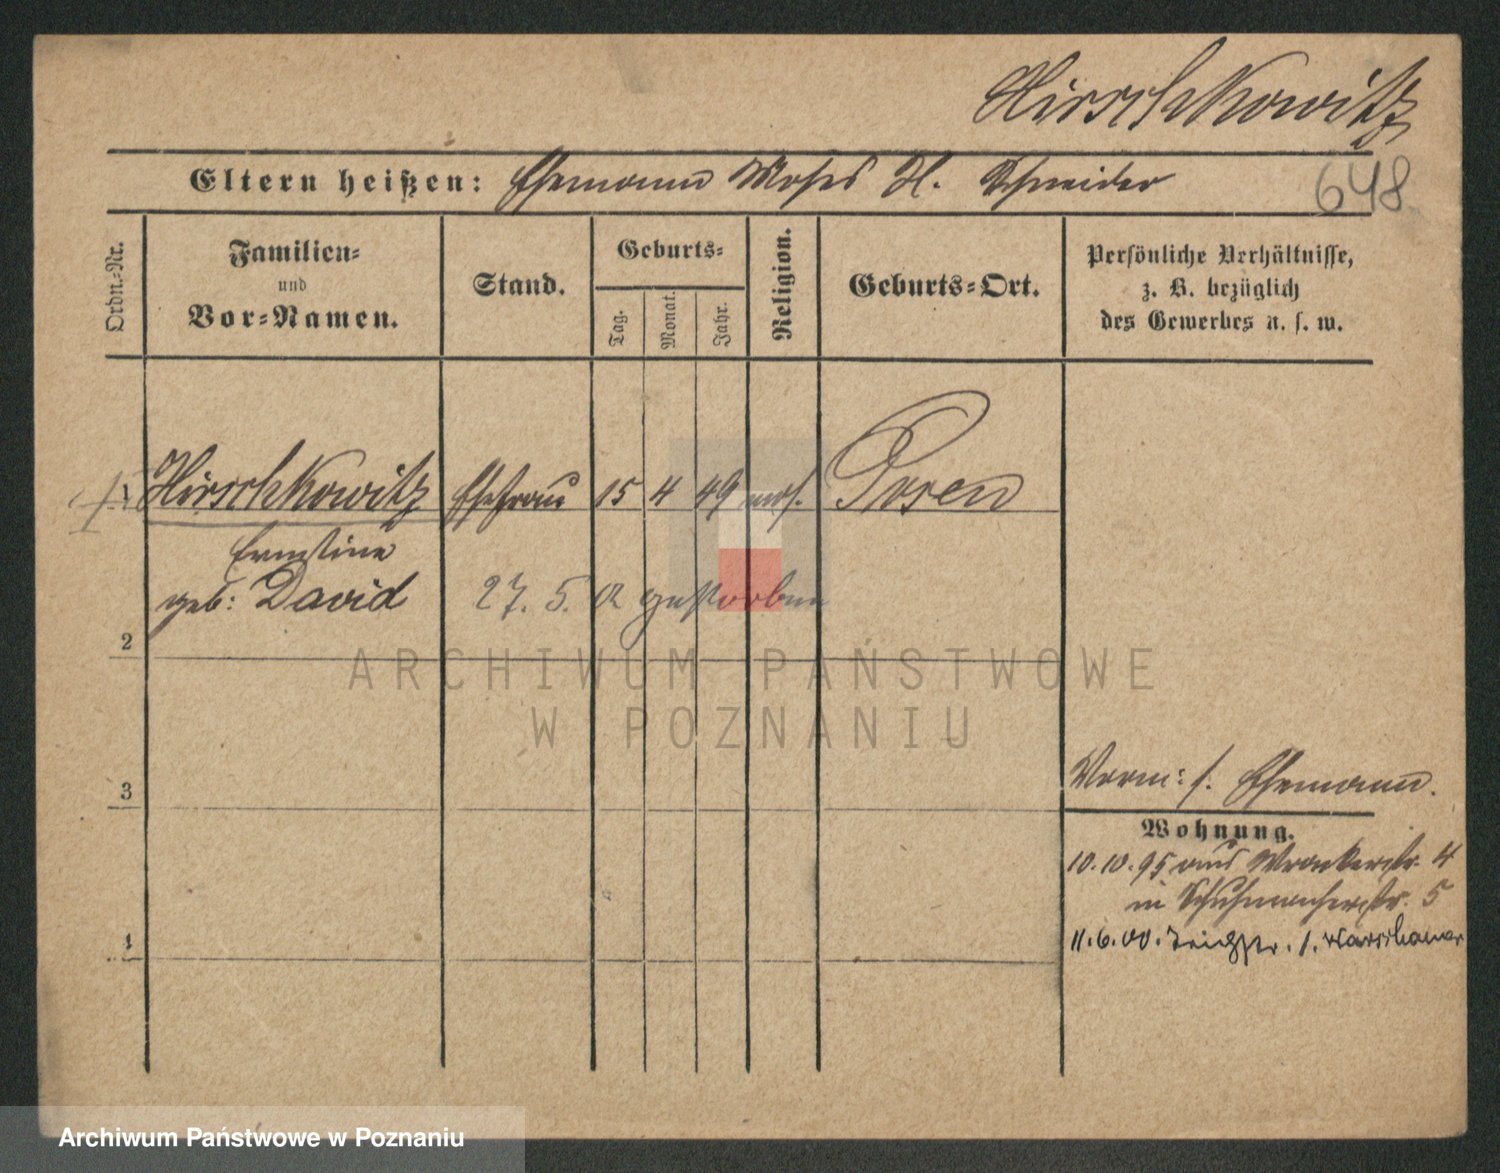 Hirschkowitz
Eltern heißen: Ehemann Moses H. Schneider
648
Ordn.-Nr.
Familien-
und
Vor-Namen.
Stand.
Geburts-
Tag.
Monat.
Jahr.
Religion.
Geburts-Ort.
Persönliche Verhältnisse,
z. B. bezüglich
des Gewerbes u. s. w.
Hirschkowitz Ehefrau 15 4 49 mos. Posen
Ernstine
geb: David
27. 5. 02 gestorben
2
ARCHIWUM PAŃSTWOWE
W POZNANIU
3
Verm: s. Ehemann.
Wohnung.
10.10.95 aus Wronkerstr. 4
in Schuhmacherstr. 5
4
11.6.00. Teichstr. 1. Warschauer
Archiwum Państwowe w Poznaniu